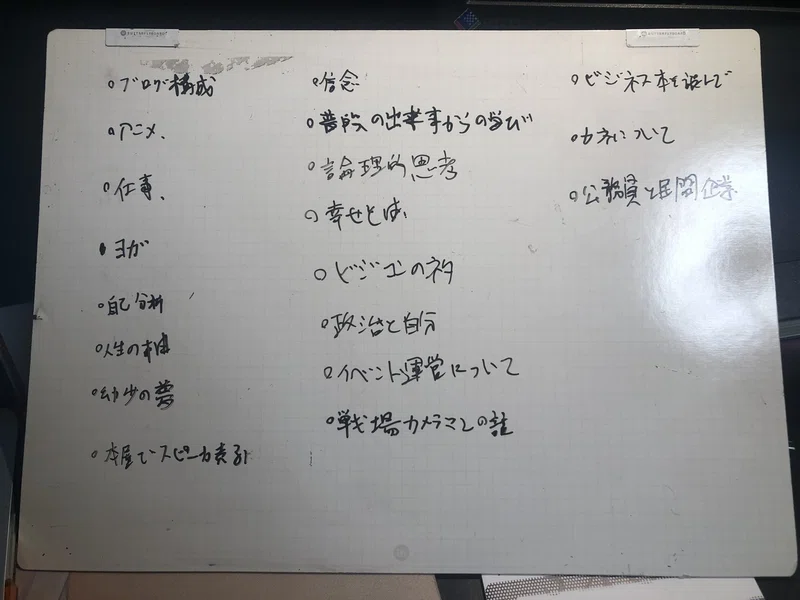 ○ブログ構成
○アニメ、
○仕事、
○ヨガ
○自己分析
○人生の
○幼少の夢
○本屋でスピーカ
○信念
○普段の出来事からの学び
○論理的思考
○幸せとは、
○ビジコンのネタ
○政治と自分
○イベント運営について
○戦場カメラマンの話
○ビジネス本を読んで
○について
○公務員と民間企業